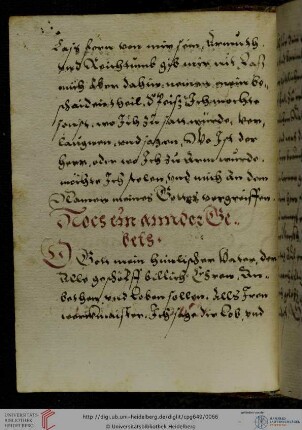 Lass ferrn von mir sein, Armuth
und Reichtumb gib mir nit, Lass
mich aber dahin, nemen mein be-
schaiden theil, Ich möchte
sonst, wo Ich zu satt würde, ver-
laugnen, und sagen, Wo Ist der
Herr, oder wo Ich zu Arm würde
möchte Ich stelen, und mich an dem
Namen meines Gotts vergreiffen
Noch ein annder Ge-
bett.
O Gott mein himlischer Vater, den
Alle geschöpff billich Ehren, An-
betten, und Loben sollen, Alls Iren
Ich sage dir Lob, und
UNIVERSITÄTS-
BIBLIOTHEK
HEIDELBERG
http://digi.ub.uni-heidelberg.de/diglit/cpg649/0066
© Universitätsbibliothek Heidelberg